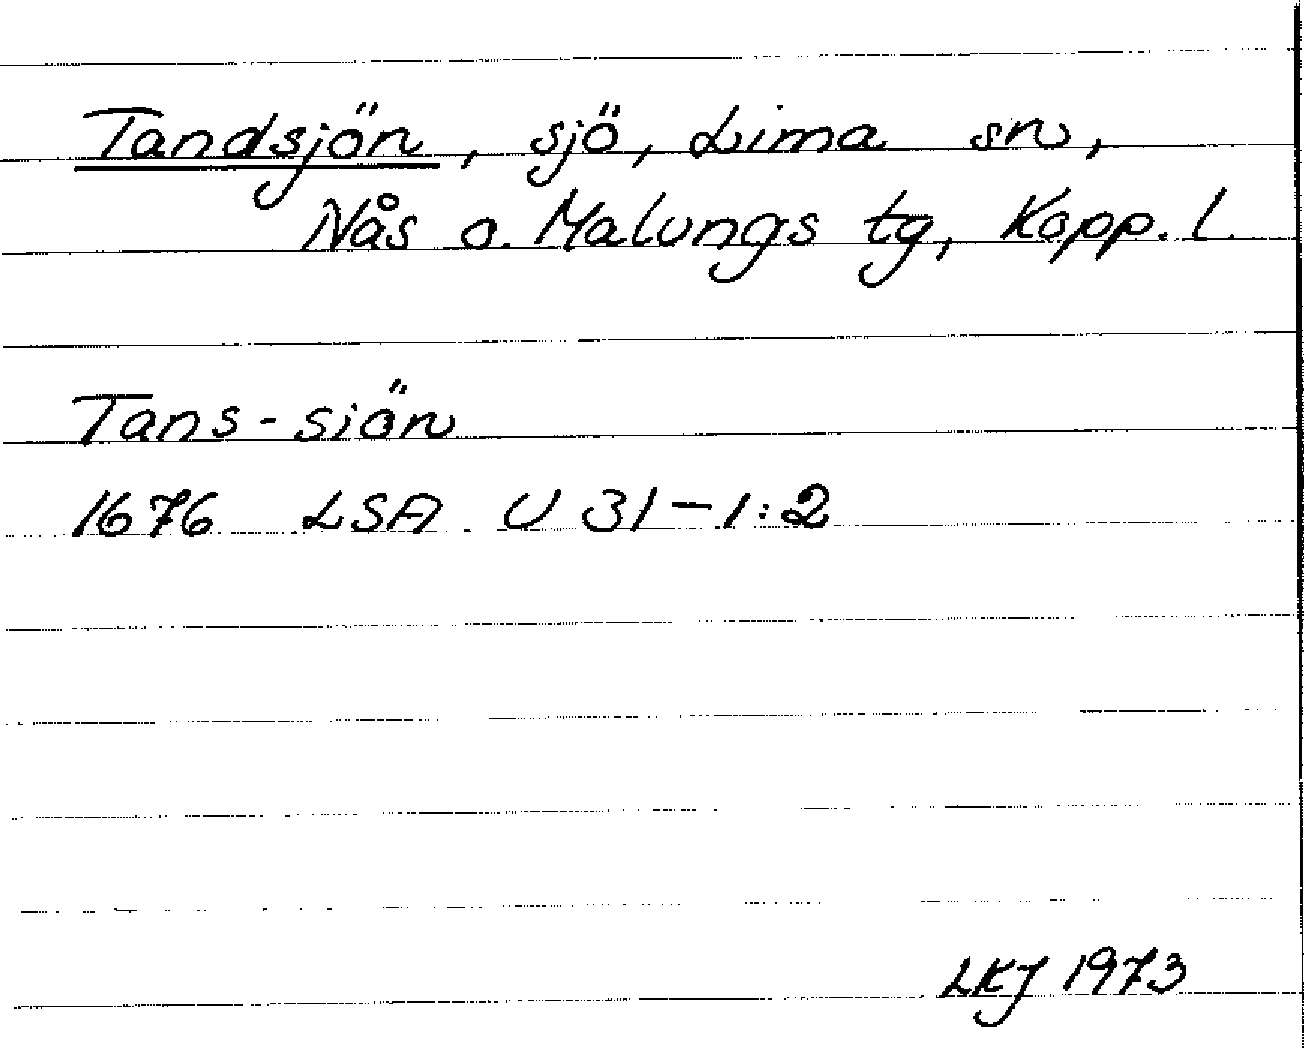 Tandsjön, sjö, Lima sn,
Nås o. Malungs tg, Kopp. l.
Tans-siön
1676 LSA U 31-1:2
LKJ 1973